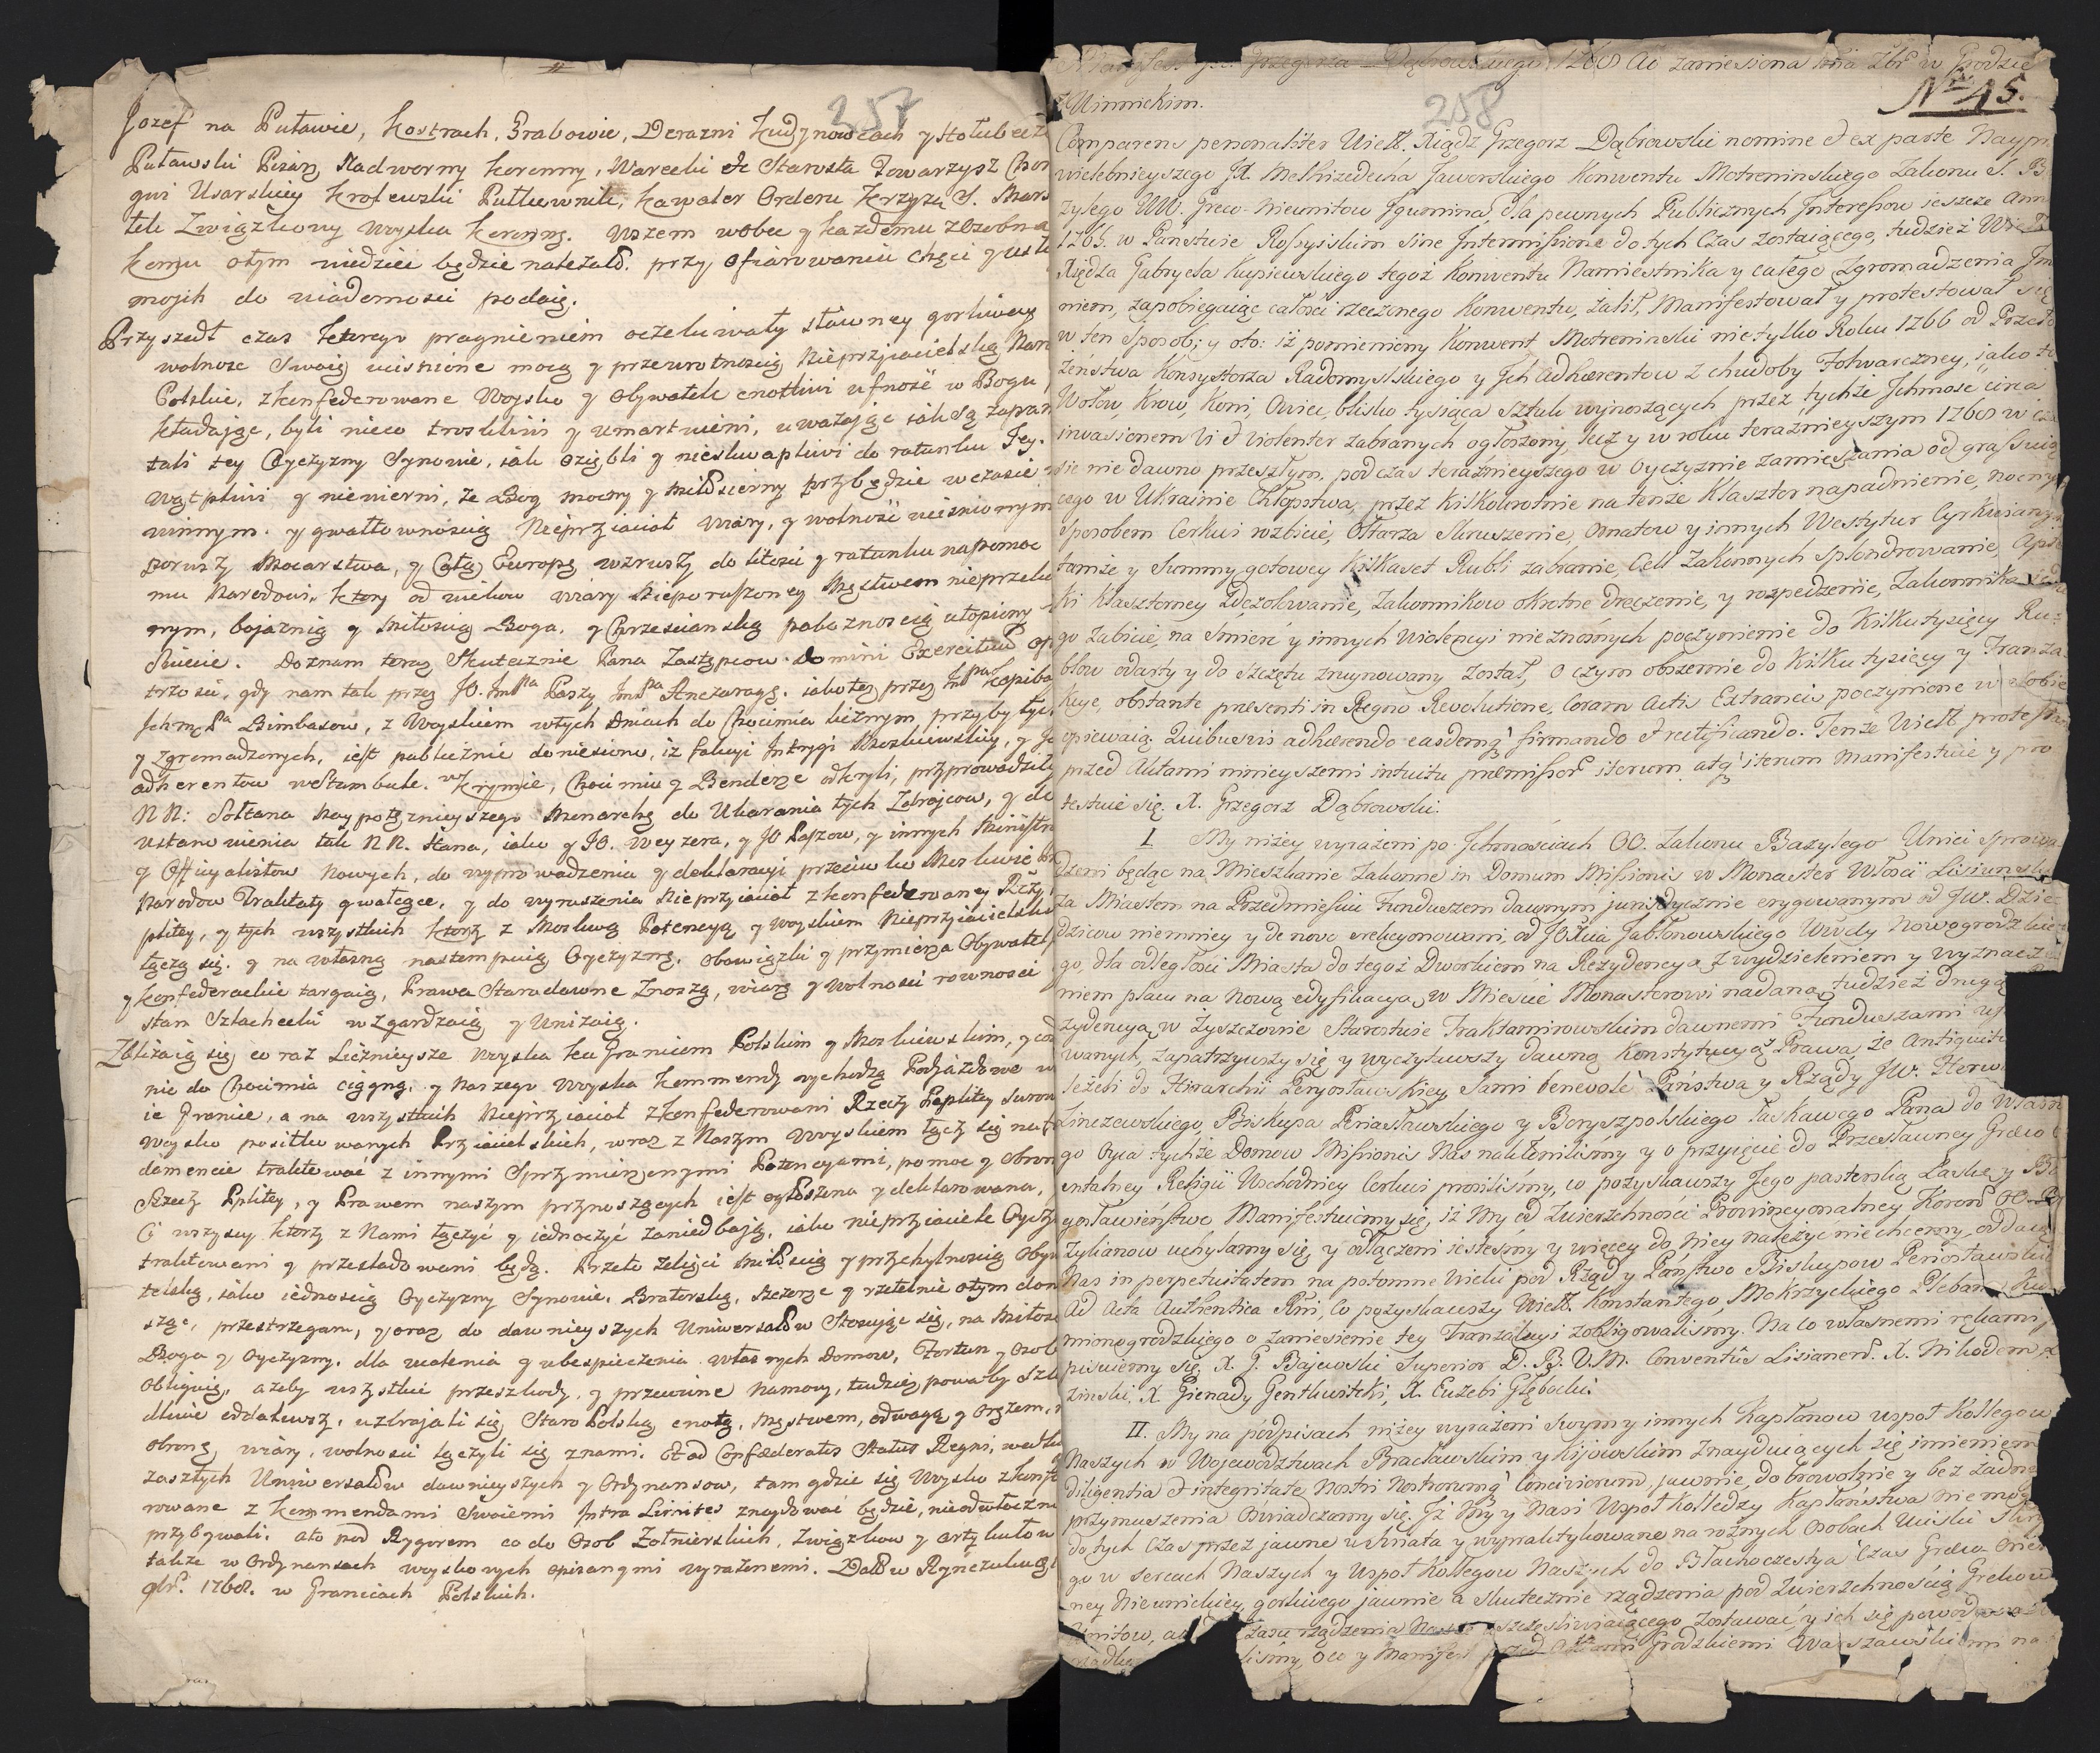 257
Jozef na Puławie, Kostrach, Grabowie, Derazni Kudynowcach y Hołubecz
Puławski Pisarz Nadworny Koronny, Warecki &c Starosta Towarzysz Chor
gwi Usarskiey Krolewski Pułkownik, Kawaler Orderu Krzyża S. Mars
łek Związkowy Woyska Koronng. Wszem wobec y każdemu zosobna
komu otym wiedziec będzie należało. przy ofiarowaniu chęci y usł
mojih do wiadomosci podaię.
Przyszedł czas ktorego pragnieniem oczekiwały sławney gorliwcy
wolnosc Swoią ucisnione mocą y przewrotnoscią Nieprzyiacielską Nar
Polskie, zkonfederowane Woysko y Obywatele cnotliwi ufność w Bogu
kładając, byli nieco troskliwi y umartwieni, uważając iak są zapam
tali tey Oyczyzny Synowie, iak oziębli y nieskwapliwi do ratunku Jey.
wątpliwi y niewierni, że Bog mocny y Miłosierny przybędzie wczasie
winnym. y gwałtownoscią Nieprzyiacioł wiary, y wolność ucisnionym
poruszy Mocarstwa, y Całą Europę wzruszy do litości y ratunku na pomoc
mu Narodowi, ktory od wiekow wiary Nieporuszoney Męstwem nieprzeła
nym, bojaznią y Miłoscią Boga, y Chrzescianską pobożnoscią utopiony
Swiecie. Doznam teraz Skutecznie Pana Zastępcow Domini Exercituū op
trznosci, gdy nam tak przez JO. Jmspa Paszy Jmspa Anczaragę, iakoteż przez Jmspa Kapiba
Jchmspa Bimbaszow, z Woyskiem wtych dniach do Chocimia licznym przybyłyc
y Zgromadzonych, iest publicznie doniesiono, iz fakcyi Intrygi Moskiewskiey, y Je
adherentow w Stambule, w Krymie, Chocimiu y Benderze odkryli, przyprowadzili
NN: Sołtana Naypotężnieyszego Monarchę do Ukarania tych Zdrajcow, y do
ustanowienia tak NN. Hana, iako y JO. Weyzera, y JO Paszow, y innych Ministr
y Officyalistow Nowych, do wyprowadzenia y deklaracyi przeciwko Moskwie
Narodow Traktaty gwałcące, y do wyruszenia Nieprzyiacioł zkonfederowaney Rzey
plitey, y tych wszystkich ktorzy z Moskwą Potencyą y woyskiem Nieprzyiacielski
łączą się. y na własną nastempuią Oyczyznę, obowiązki y przymierza Obywatel
y konfederackie targaią, Prawa Starodawne Znoszą, wiarę y wolnosci rownosci
stan Szlachecki wzgardzaią y Unizaią.
Zbliżaią się co raz Licznieysze woyska ku Granicom Polskim y Moskiewskim, y cod
nie do Chocimia ciągną, y Naszego Woyska kommendy wychodzą Podjazdowe w
ie Granice, a na wszystkich Nieprzyiacioł zkonfederowani Rzeczy Pplitey surow
woysko posiłkowanych Przyiacielskich, wraz z Naszym woyskiem łączy się na f
damencie traktować z innymi Sprzymierzonymi Potencyami, pomoc y obron
Rzeczy Pplitey, y Prawem naszym przynoszących iest ogłoszona y deklarowana,
Ci wszyscy ktorzy z Nami łączyć y iednoczyć zaniedbają, iako nieprzyiaciele Oyczy
traktowani y przesladowani będą. Przeto Religii Miłoscią y przychylnoscią Obyw
telską, iako iednoscią Oyczyzny Synowie. Braterską, szczerze y rzetelnie otym don
sząc, przestrzegam, y oraz do dawnieyszych Uniwersałow Stosując się, na Miłos
Boga y Oyczyzny, dla ocalenia y ubespieczenia własnych Domow, Fortun y Osob
Obliguię, ażeby wszystkie przeszkody, y przewinne namowy, tudzież powaby Szk
dliwie oddaliwszy, uzbrajali się Staro Polską cnotą, Męstwem, odwagą y Orężem,
obroną wiary, wolnosci łączyli się znami. Et ad Confœderatos Status Regni, według
zaszłych Uniwersałow dawnieyszych y Ordynansow, tam gdzie się Woysko zkonfe
rowane z kommendami Swoiemi Intra Limites znaydować będzie, nieodwłoczn
przybywali. ato pod Rygorem co do Osob Żołnierskich, Związkow y artykułow
także w Ordynansach woyskowych opisanymi wyrażonemi. Dat w Rynczuku
8br. 1768. w Granicach Polskich.
258
Manifest przez Grzegorza Dąbrowskiego 1768 Ao zaniesiona Dnia 28br w Grodzie
Winnickim.
Nro 45.
Comparens personaliter Wielb. Xiądz Grzegorz Dąbrowski nomine et ex parte Nayprz
wielebnieyszego JX. Melhizedecha Jaworskiego Konwentu Motreninskiego Zakonu S. B
zylego WW. Greco-Nieunitow Jgumina, dla pewnych Publicznych Interessow ieszcze Ann
1765. w Państwie Rossyiskim sine Intermissione do tych Czas zostaiącego, tudzież Wielb
Xiędza Gabryela Kupiewskiego tegoż Konwentu Namiestnika y całego Zgromadzenia Jm
niem, zapobiegaiąc całości rzeczonego Konwentu, żalił, Manifestował y protestował się
w ten sposob; y oto: iż pomieniony Konwent Motreninski nie tylko Roku 1766 od Przeło
żeństwa Konsystorza Radomyslskiego y Jch Adhærentow z chudoby Folwarczney, iako to
Wołow, Krow, Koni, Owiec, blisko tysiąca sztuk wynoszących przez tychże Jchmość circa
invasionem vi et violenter zabranych ogłoszony, lecz y w roku teraźnieyszym 1768 w cza
sie nie dawno przeszłym, podczas teraźnieyszego w Oyczyznie zamieszania od grassuią
cego w Ukrainie Chłopstwa, przez kilkokrotne na tenże Klasztor napadnienie, nocnym
sposobem Cerkwi rozbicie, Ołtarza skruszenie, Ornatow y innych Westytur Cyrkwianych
tamże y Summy gotowey Kilkaset Rubli zabranie, Cell Zakonnych splondrowanie, Apte
ki Klasztorney Dezolowanie, Zakonnikow okrótne dręczenie, y rozpędzenie, Zakonnika iedne
go zabicie, na śmierć y innych Violencyi nieznośnych poczynienie do Kilku tysięcy Ru:
blow odarty y do szczętu zruynowany został, o czym obszernie do kilku tysięcy y Tranza
kcye, obstante præsenti in Regno Revolutione, Coram Actis Extraneis poczynione w sobie
opiewaią: Quibusvis adhærendo easdemq firmando et rectificando. Tenże Wielb protestans
przed Aktami ninieyszemi intuitu præmissor iterum atq iterum Manifestuie y pro
testuie się. X. Grzegorz Dąbrowski:
I My niżey wyrażeni po Jchmościach OO. Zakonu Bazylego Unici sprowa
dzeni będąc na Mieszkanie Zakonne in Domum Missionis w Monaster Włości Lisiansky
za Miastem na Przedmiesciu Funduszem dawnym juridycznie erygowanym od JW. Dzie:
dzicow niemniey y de novo erekcyonowani, od JOXcia Jabłonowskiego Wdy Nowogrodzkie
go, dla odległości Miasta do tegoż Dworkiem na Rezydencyą z wydzieleniem y wyznacze
niem placu na Nową edyfikacyą, w Mieście Monasterowi nadaną, tudzież drugą
zydencyą, w Żyszczowie Starostwie Traktamirowskim dawnemi Funduszami up
wanych, zapatrzywszy się y wyczytawszy dawną Konstytucyą Prawa, że Antiquit
leżeli do Hirarchii Peryosławskiey, Sami benevolè Państwa y Rządy JW. Herw
Linczewskiego, Biskupa Periasławskiego y Boryszpolskiego Łaskawego Pana do Własn
go Oyca tychże Domow Missionis Nas nakłoniliśmy y o przyięcie do Przesławney Greko
entalney Religii Wschodniey Cerkwi prosiliśmy, co pozyskawszy Jego pasterską Łaskę y Bł
gosławieństwo Manifestuiemy się, iż My od Zwierzchności Prowincyonalney Koron OO. B
zylianow uchylamy się, y odłączeni iestesmy y więcey do Niey należyć nie chcemy, oddaiąc
Nas in perpetuitatem na potomne Wieki pod Rząd y Państwo Biskupow Periosławski
Ad Acta Authentica Rni, Co pozyskawszy Wielb. Konstantego Mokrzyckiego Pleban
mionogrodzkiego o zaniesienie tey Tranzakcyi zobligowalismy. Na co własnemi rękami
pisuiemy się, X. G. Bajewski Superior D. B. V. M. Conventûs Lisianen. X. Nikodem
zinski, X Gienady Gentkwitzki, X. Euzebi Głębocki.
II. My na podpisach niżey wyrażeni swym y innych Kapłanow wspoł Kollegow
Naszych w Wojewodztwach Bracławskim y Kijowskim znayduiących się imieniem
diligentia et integritate Nostri Nostrorumq Conciviorum, jawnie, dobrowolnie y bez żadne
przymuszenia Oświadczamy się. Jż My y Nasi Wspoł Kolledzy Kapłaństwa nie mo
do tych Czas przez jawne uchwała y wypraktykowane na rożnych Osobach Uciski
go w sercach Naszych y Wspoł Kollegow Naszych do Błachoczestya Czas Greko Orien
ney Nieunickiey, gorliwego jawnie a skutecznie rządzenia pod Zwierzchnością Grekow
Unitow, ad czasu rządzenia Nasze uszczęśliwiaiącego zostawać, y ich się powod
lismy, Oco y Manifest przed Aktami Grodzkiemi Warszawskiemi na